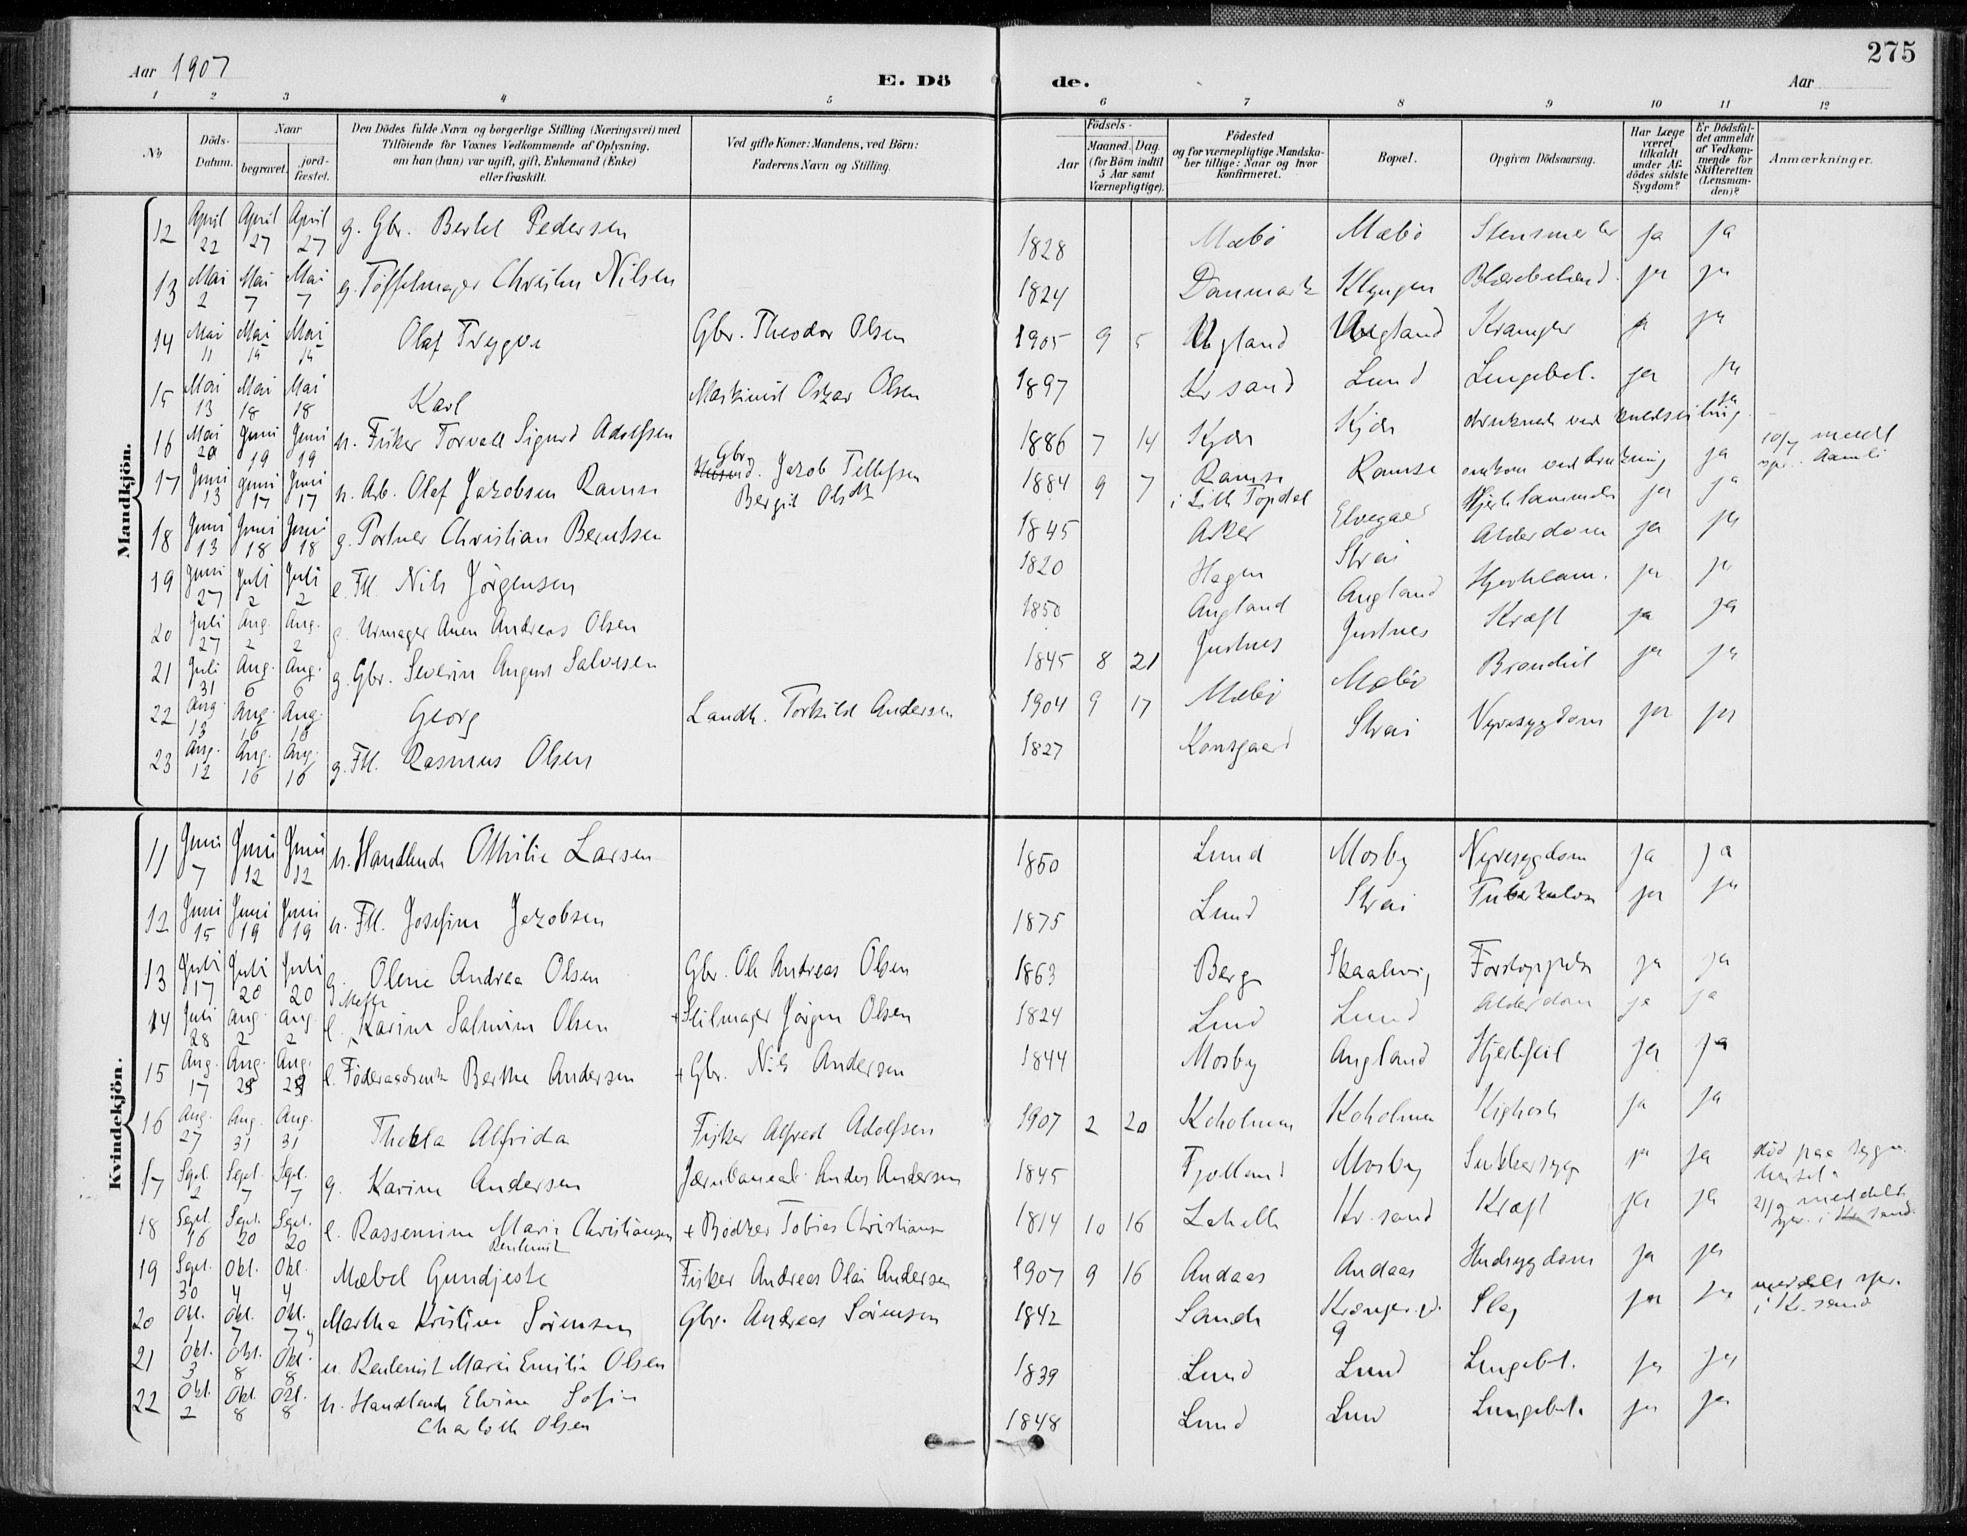 275
Aar 1907
E. Dö de.
Aar
1 2 3 4 5 6 7 8 9 10 11 12
No
Döds-Datum.
Naar
begravet.
jord-fæstet.
Den Dödes fulde Navn og borgerlige Stilling (Næringsvei) med
Tilföiende for Voxnes Vedkommende af Oplysning,
om han (hun) var ugift, gift, Enkemand (Enke)
eller fraskilt.
Ved gifte Koner: Mandens, ved Börn:
Faderens Navn og Stilling.
Födsels-
Aar
Maaned. Dag.
(for Börn indtil
5 Aar samt
Værnepligtige).
Födested
og for værnepligtige Mandska-
ber tillige: Naar og hvor
konfirmeret.
Bopæl.
Opgiven Dödsaarsag.
Har Læge
været
tilkaldt
under Af-
dödes sidste
Sygdom?
Er Dödsfal-
det anmeldt
af Vedkom-
mende for
Skifteretten
(Lensman-
den)?
Anmærkninger.
Mandkjön.
12 April 22 April 27 April 27 g. Gbr. Bertel Pedersen 1828 Mæbö Mæbö ja ja
13 Mai 2 Mai 7 Mai 7 g. Töffelmager Christen Nilsen 1824 Danmark Klyngen ja ja
14 Mai 11 Mai 15 Mai 15 Olaf Trygve Gbr. Theodor Olsen 1905 9 5 Augland Kramper ja ja
15 Mai 13 Mai 18 Mai 18 Karl Maskinist Oskar Olsen 1897 Kr sand Lund Lungebet. ja ja
16 Mai 20 Juni 19 Juni 19 u. Fisker Torvald Sigurd Adolfsen 1886 7 14 Kjær Kjær druknede ved ja
17 Juni 13 Juni 17 Juni 17 u. Arb. Olaf Jakobsen Ramse Gbr. Jakob Tellefsen 1884 9 7 Ramse Ramse omkom ved drukning ja 10/7 meldt
Bergit Olsdtr i Lille Topdal spr. Aamli
18 Juni 13 Juni 18 Juni 18 g. Portner Christian Berntsen 1845 Aker Elvegaer Hjertelammelse ja ja
19 Juni 27 Juli 2 Juli 2 e. Fll. Nils Jörgensen 1820 Hagen Strai Alderdom ja ja
20 Juli 27 Aug. 2 Aug. 2 g. Urmager Anen Andreas Olsen 1850 Augland Augland Hjertelam. ja ja
21 Juli 31 Aug. 6 Aug. 6 g. Gbr. Severin August Salvesen 1845 8 21 Justnes Justnes Kræft ja ja
22 Aug. 13 Aug. 16 Aug. 16 Georg Landh. Torkild Andersen 1904 9 17 Mæbö Mæbö ja ja
23 Aug. 12 Aug. 16 Aug. 16 g. Fll. Rasmus Olsen 1827 Kongsgaard Strai Nyresygdom ja ja
Kvindekjön.
11 Juni 7 Juni 12 Juni 12 u. Handlende Othilie Larsen 1850 Lund Mosby Nyresygdom ja ja
12 Juni 15 Juni 19 Juni 19 u. Fll. Josefine Jakobsen 1875 Lund Strai Tuberkulose ja ja
13 Juli 17 Juli 20 Juli 20 g. Olene Andrea Olsen Gbr. Ole Andreas Olsen 1863 Berg Skaalevig Forstoppelse ja ja
14 Juli 28 Aug. 2 Aug. 2 e. Mette Karine Salmine Olsen + Seilmager Jörgen Olsen 1824 Lund Lund Alderdom ja ja
15 Aug. 17 Aug. Aug. e. Föderaadsenke Berthe Andersen + Gbr. Nils Andersen 1844 Mosby Augland Hjertefeil ja ja
16 Aug. 27 Aug. 31 Aug. 31 Thekla Alfrida Fisker Alfred Adolfsen 1907 2 20 Koholmen Koholmen Kighoste ja ja
17 Sept. 2 Sept. 7 Sept. 7 g. Karine Andersen Jærnbaneab. Anders Andersen 1845 Fjotland Mosby Sukkersyge ja ja död paa syge-
huset.
18 Sept. 16 Sept. 20 Sept. 20 e. Rassemine Marie Christiansen + Bödker Tobias Christiansen 1814 10 16 Lahelle Kr. sand Kræft ja ja 21/9 meddelt
Rentenist spr. i Kr sand.
19 Sept. 30 Okt. 4 Okt. 4 Mabel Gundjeste Fisker Andreas Olai Andersen 1907 9 16 Andaas Andaas Hudsygdom ja ja
20 Okt. 1 Okt. 7 Okt. 7 Martha Kristine Sörensen Gbr. Andreas Sörensen 1842 Sande Slag ja ja meddelt spr.
9 i Kr. sand
21 Okt. 3 Okt. 8 Okt. 8 u. Rentenist Marie Emilie Olsen 1839 Lund Lund Lungebet. ja ja
22 Okt. 2 Okt. 8 Okt. 8 u. Handlende Elvine Sofie 1848 Lund Lund Lungebet. ja ja
Charlotte Olsen